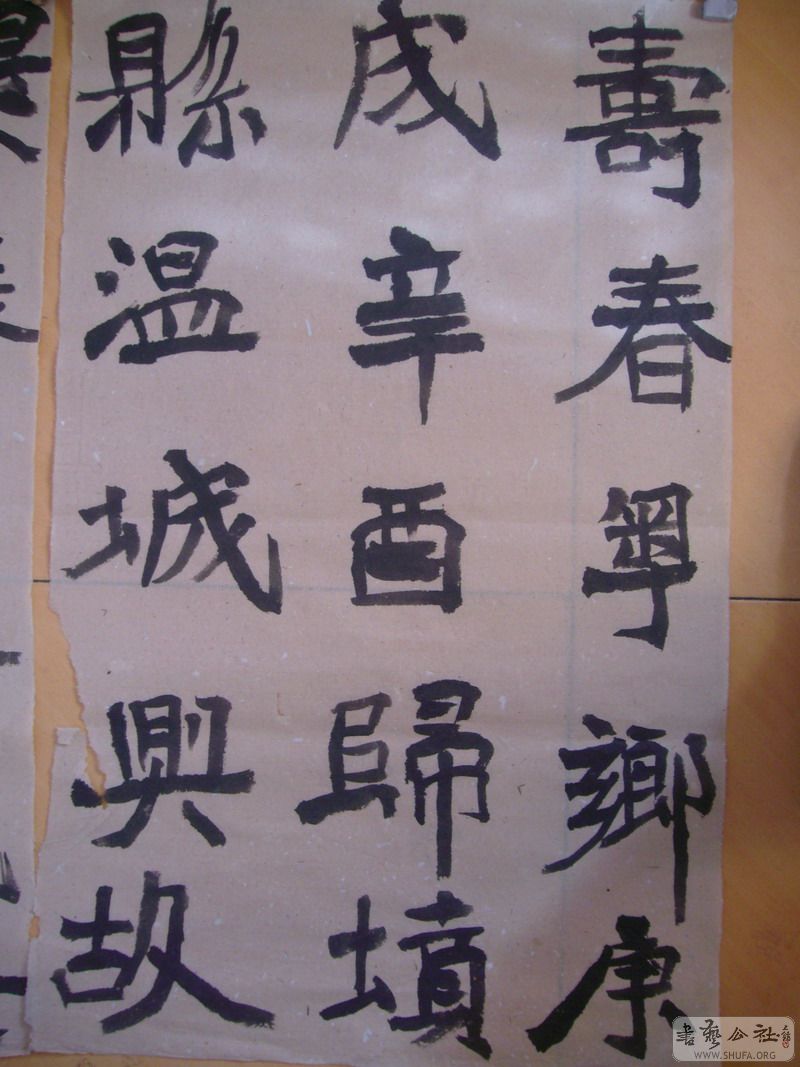 壽春粵鄉庚
戌辛酉歸墳
縣溫城興故
書藝公社
WWW.SHUFA.ORG